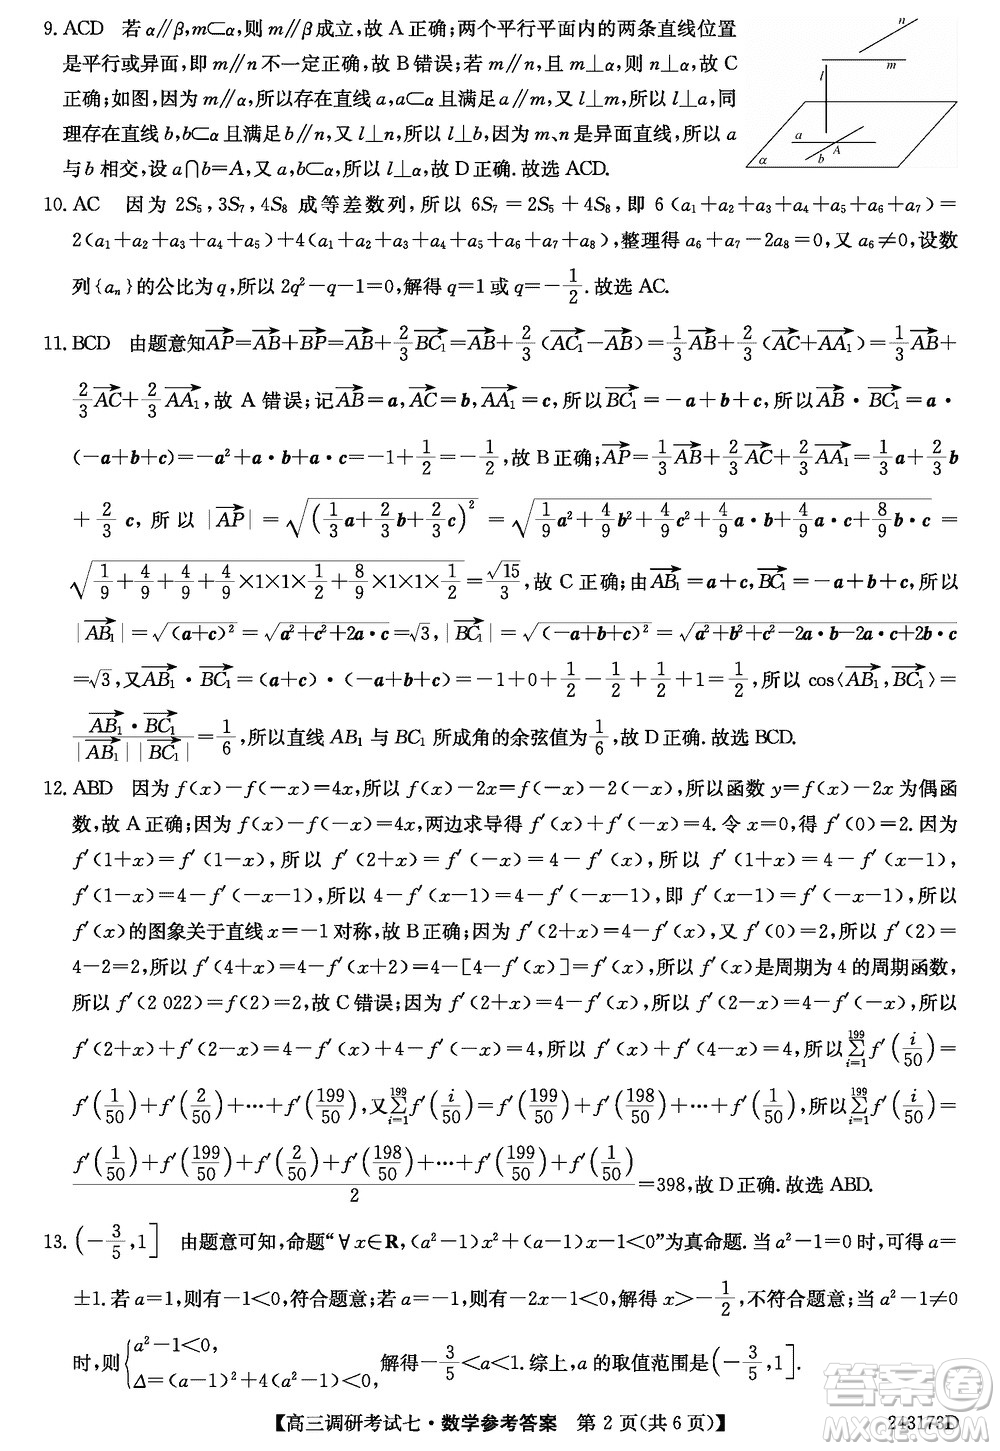 9. ACD　若 α∥β,m⊂α,则 m∥β 成立,故 A 正确;两个平行平面内的两条直线位置
是平行或异面,即 m∥n 不一定正确,故 B 错误;若 m∥n,m⊥α,则 n⊥α,故 C
正确;如图,因为 m∥α,所以存在直线 a,a⊂α 且满足 a∥m,又 l⊥m,所以 l⊥a,同
理存在直线 b,b⊂α 且满足 b∥n,又 l⊥n,所以 l⊥b,因为 m、n 是异面直线,所以 a
与 b 相交,设 a∩b=A,又 a,b⊂α,所以 l⊥α,故 D 正确.故选 ACD.
n
m
l
a
b
A
α
10. AC　因为 2S₅,3S₇,4S₈ 成等差数列,所以 6S₇=2S₅+4S₈,即 6(a₁+a₂+a₃+a₄+a₅+a₆+a₇)=
2(a₁+a₂+a₃+a₄+a₅)+4(a₁+a₂+a₃+a₄+a₅+a₆+a₇+a₈),整理得 a₆+a₇-2a₈=0,又 a₆≠0,设数
列{aₙ}的公比为 q,所以 2q²-q-1=0,解得 q=1 或 q=-1/2.故选 AC.
11. BCD　由题意知 AP→=AB→+BP→=AB→+2/3 BC₁→=AB→+2/3(AC₁→-AB→)=1/3 AB→+2/3(AC→+AA₁→)=1/3 AB→+
2/3 AC→+2/3 AA₁→,故 A 错误;记 AB→=a,AC→=b,AA₁→=c,所以 BC₁→=-a+b+c,所以 AB→·BC₁→=a·
(-a+b+c)=-a²+a·b+a·c=-1+1/2+1/2=0,故 B 正确;AP→=1/3 AB→+2/3 AC→+2/3 AA₁→=1/3 a+2/3 b
+2/3 c,所以|AP→|=√((1/3 a+2/3 b+2/3 c)²)=√(1/9 a²+4/9 b²+4/9 c²+4/9 a·b+4/9 a·c+8/9 b·c)=
√(1/9+4/9+4/9+4/9×1×1×1/2+8/9×1×1×1/2)=√15/3,故 C 正确;由 AB₁→=a+c,BC₁→=-a+b+c,所以
|AB₁→|=√((a+c)²)=√(a²+c²+2a·c)=√3,|BC₁→|=√((-a+b+c)²)=√(a²+b²+c²-2a·b-2a·c+2b·c)
=√3,又 AB₁→·BC₁→=(a+c)·(-a+b+c)=-1+0+1/2-1/2+1/2+1=1/2,所以 cos⟨AB₁→,BC₁→⟩=
AB₁→·BC₁→/(|AB₁→||BC₁→|)=1/6,所以直线 AB₁ 与 BC₁ 所成角的余弦值为 1/6,故 D 正确.故选 BCD.
12. ABD　因为 f(x)-f(-x)=4x,所以 f(x)-2x=f(-x)-2(-x),所以函数 y=f(x)-2x 为偶函
数,故 A 正确;因为 f(x)-f(-x)=4x,两边求导得 f′(x)+f′(-x)=4.令 x=0,则 f′(0)=2.因为
f′(1+x)=f′(1-x),所以 f′(2+x)=f′(-x)=4-f′(x),所以 f′(1+x)=4-f′(x-1),
f′(1-x)=4-f′(-x-1),所以 4-f′(x-1)=4-f′(-x-1),即 f′(x-1)=f′(-x-1),所以
f′(x)的图象关于直线 x=-1 对称,故 B 正确;因为 f′(2+x)=4-f′(x),又 f′(0)=2,所以 f′(2)=
4-2=2,所以 f′(4+x)=4-f′(2+x)=4-[4-f′(x)]=f′(x),所以 f′(x)是周期为 4 的周期函数,
所以 f′(2 022)=f(2)=2,故 C 错误;因为 f′(2+x)=4-f′(x),所以 f′(2-x)=4-f′(-x),所以
f′(2+x)+f′(2-x)=4-f′(x)+4-f′(-x)=4,所以 f′(x)+f′(4-x)=4,所以 ∑_{i=1}^{199} f′(i/50)=
f′(1/50)+f′(2/50)+…+f′(199/50),又 ∑_{i=1}^{199} f′(i/50)=f′(199/50)+f′(198/50)+…+f′(1/50),所以 ∑_{i=1}^{199} f′(i/50)=
(f′(1/50)+f′(199/50)+f′(2/50)+f′(198/50)+…+f′(199/50)+f′(1/50))/2=398,故 D 正确.故选 ABD.
13. (-3/5,1]　由题意可知,命题“∀x∈R,(a²-1)x²+(a-1)x-1<0”为真命题.当 a²-1=0 时,可得 a=
±1.若 a=1,则有-1<0,符合题意;若 a=-1,则有-2x-1<0,解得 x>-1/2,不符合题意;当 a²-1≠0
时,则{a²-1<0, Δ=(a-1)²+4(a²-1)<0, 解得-3/5<a<1.综上,a 的取值范围是(-3/5,1].
【高三调研考试七·数学参考答案　第 2 页(共 6 页)】　243173D
答案圈
MXQE.COM